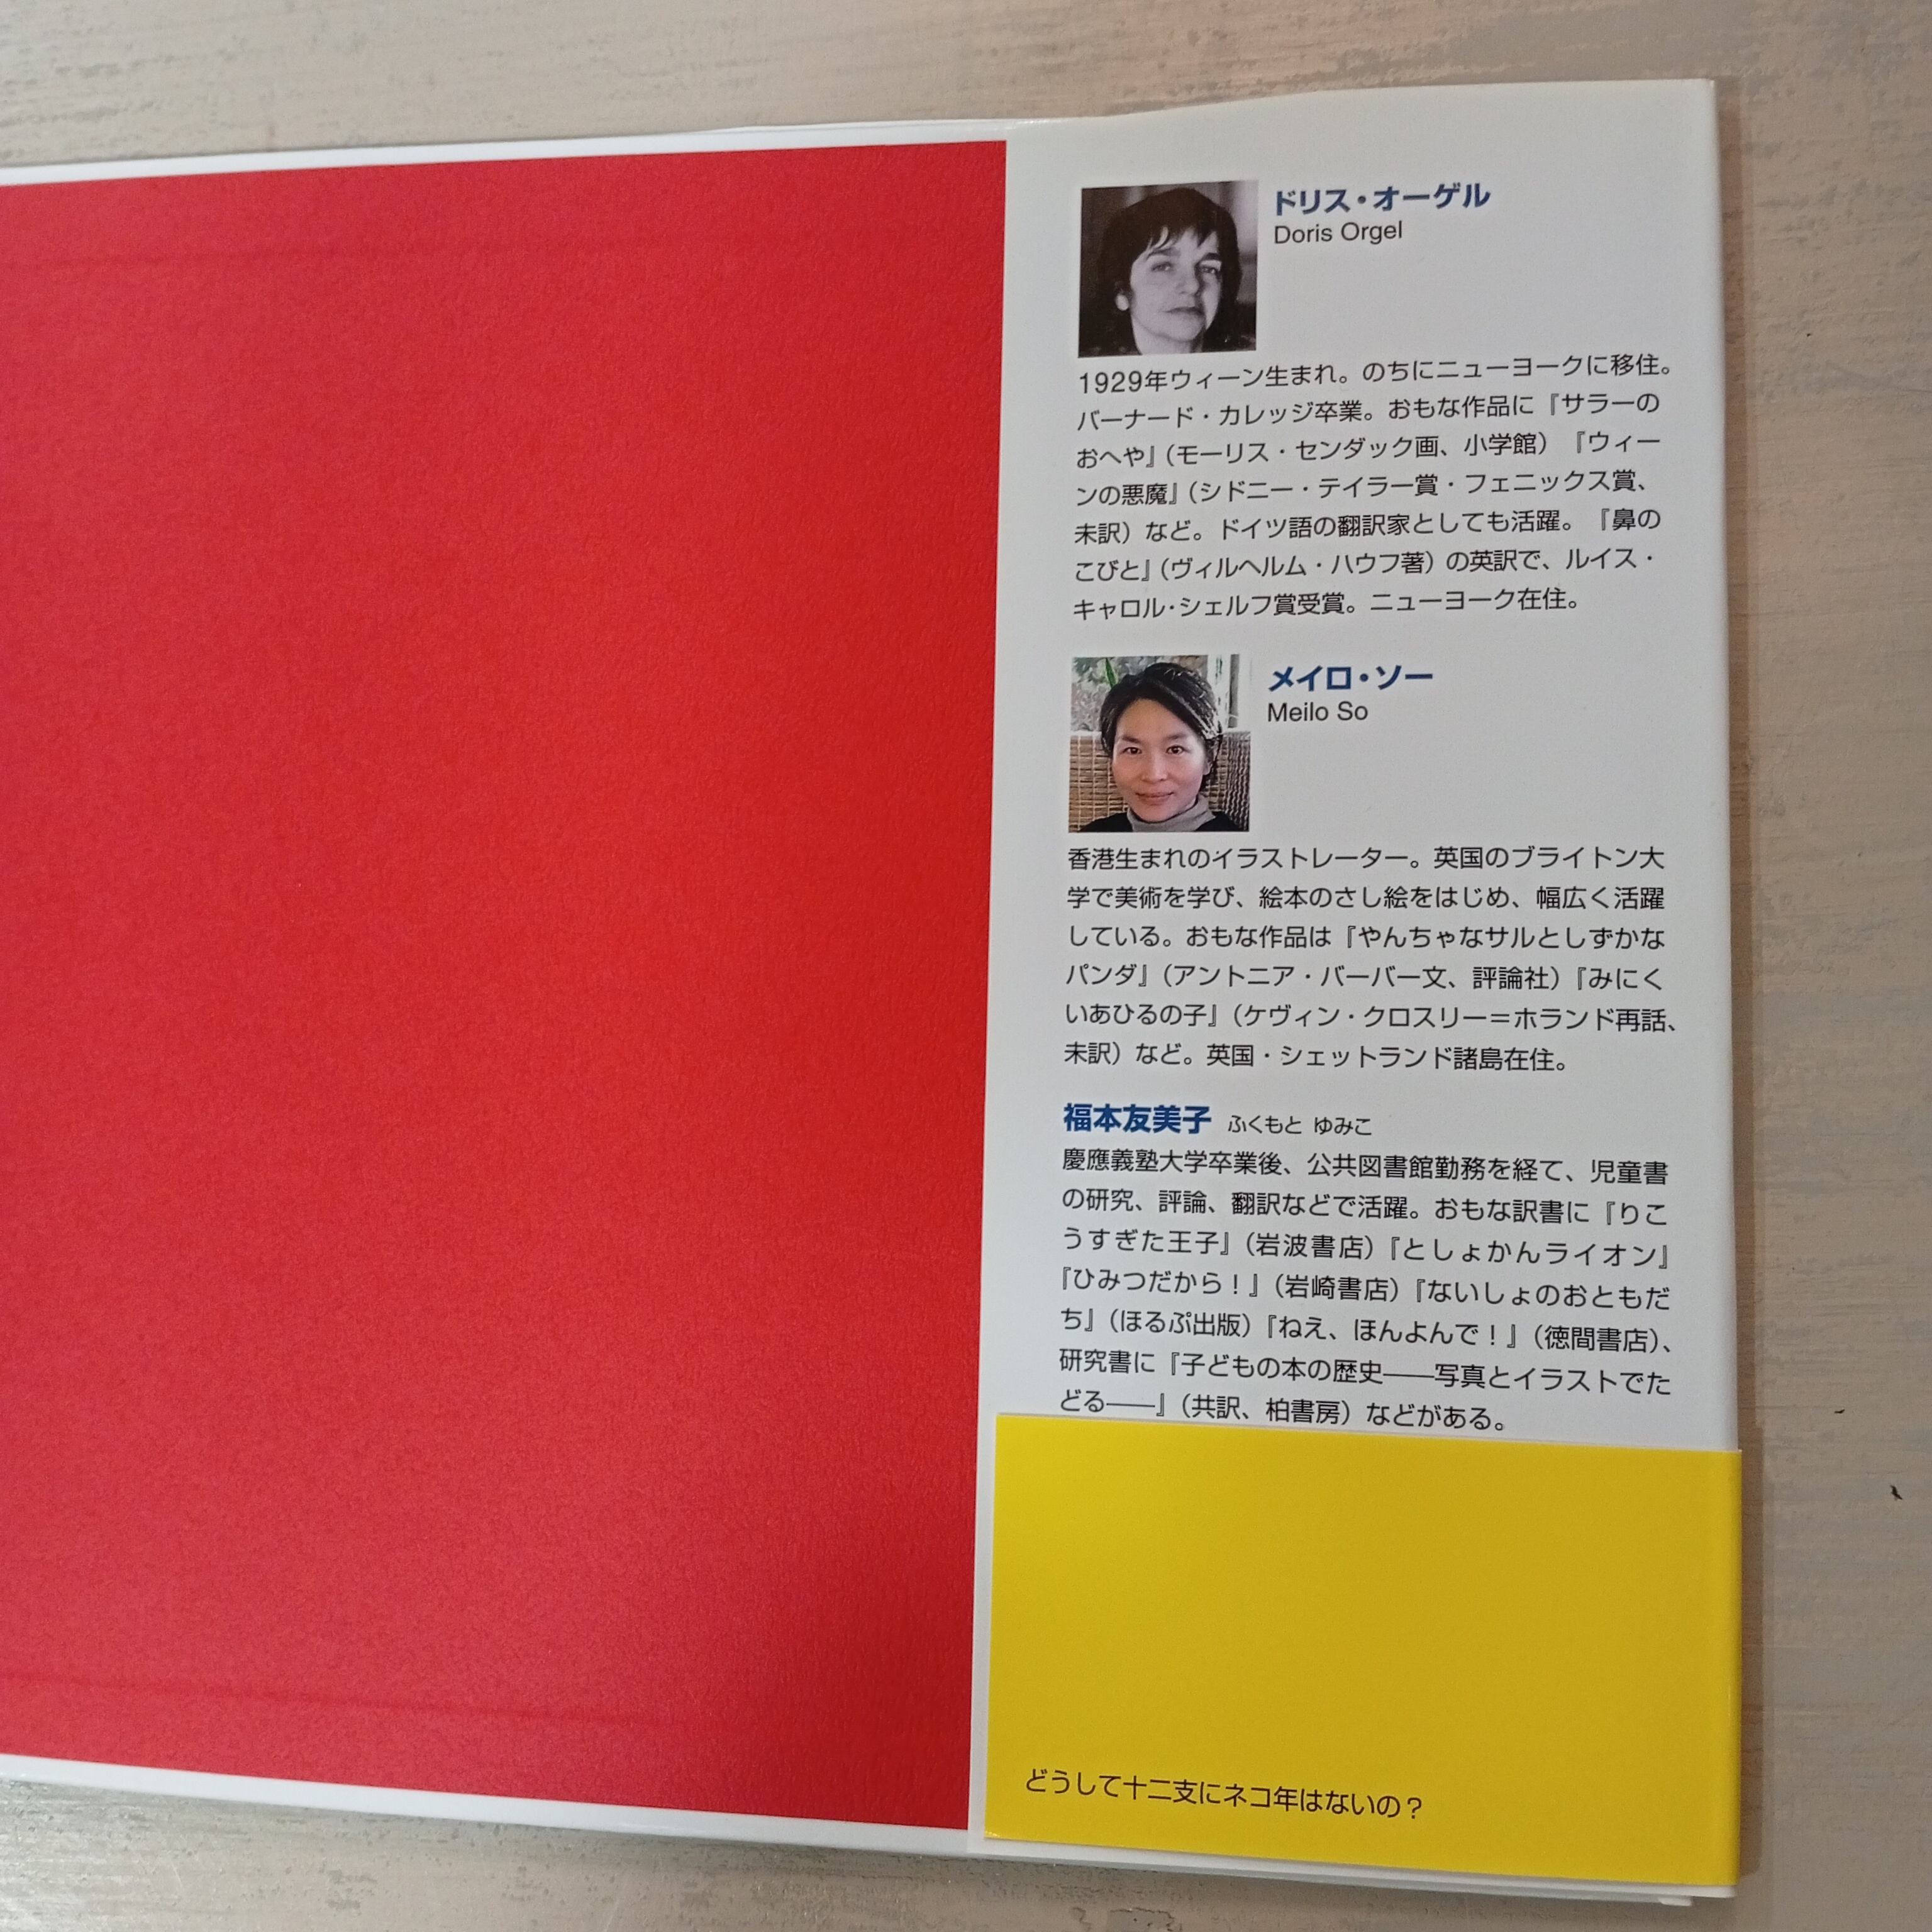 ドリス・オーゲル
Doris Orgel
1929年ウィーン生まれ。のちにニューヨークに移住。
バーナード・カレッジ卒業。おもな作品に『サラーの
おへや』（モーリス・センダック画、小学館）『ウィー
ンの悪魔』（シドニー・テイラー賞・フェニックス賞、
未訳）など。ドイツ語の翻訳家としても活躍。『鼻の
こびと』（ヴィルヘルム・ハウフ著）の英訳で、ルイス・
キャロル・シェルフ賞受賞。ニューヨーク在住。
メイロ・ソー
Meilo So
香港生まれのイラストレーター。英国のブライトン大
学で美術を学び、絵本のさし絵をはじめ、幅広く活躍
している。おもな作品は『やんちゃなサルとしずかな
パンダ』（アントニア・バーバー文、評論社）『みにく
いあひるの子』（ケヴィン・クロスリー＝ホランド再話、
未訳）など。英国・シェットランド諸島在住。
福本友美子 ふくもと ゆみこ
慶應義塾大学卒業後、公共図書館勤務を経て、児童書
の研究、評論、翻訳などで活躍。おもな訳書に『りこ
うすぎた王子』（岩波書店）『としょかんライオン』
『ひみつだから！』（岩崎書店）『ないしょのおともだ
ち』（ほるぷ出版）『ねえ、ほんよんで！』（徳間書店）、
研究書に『子どもの本の歴史——写真とイラストでた
どる——』（共訳、柏書房）などがある。
どうして十二支にネコ年はないの？